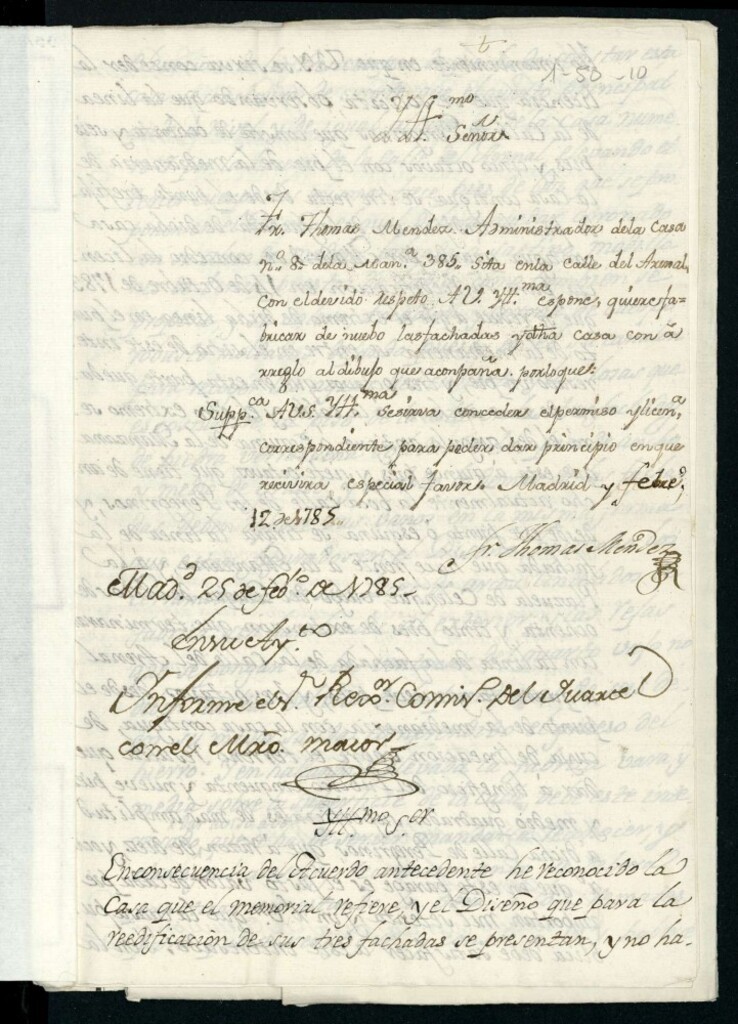 1-50-10
Yll.mo
Señor
Fr. Thomas Mendez Administrador dela Casa
n.o 8 dela Man.a 385 Sita enla calle del Arenal,
con eldevido respeto AV.S. Yll.ma espone, quiere fa-
bricar de nuebo lasfachadas ydha casa con á
rreglo al dibujo que acompaña. porloque:
Supp.ca AV.S. Yll.ma sesirva conceder elpermiso ylicen.a
correspondiente para poder dar principio enque
recivira especial favor. Madrid y febre.o
12 de 1785
Fr. Thomas Mendez
Mad.d 25 de feb.o de 1785
En su Ay.to
Informe el S.r Rexo.r Comis.o Del Quartel
con el Mro. maior
Yll.mo S.or
Enconsecuencia del Acuerdo antecedente he reconocido la
Casa que el memorial refiere, y el Diseño que para la
reedificacion de sus tres fachadas se presentan, y no ha-